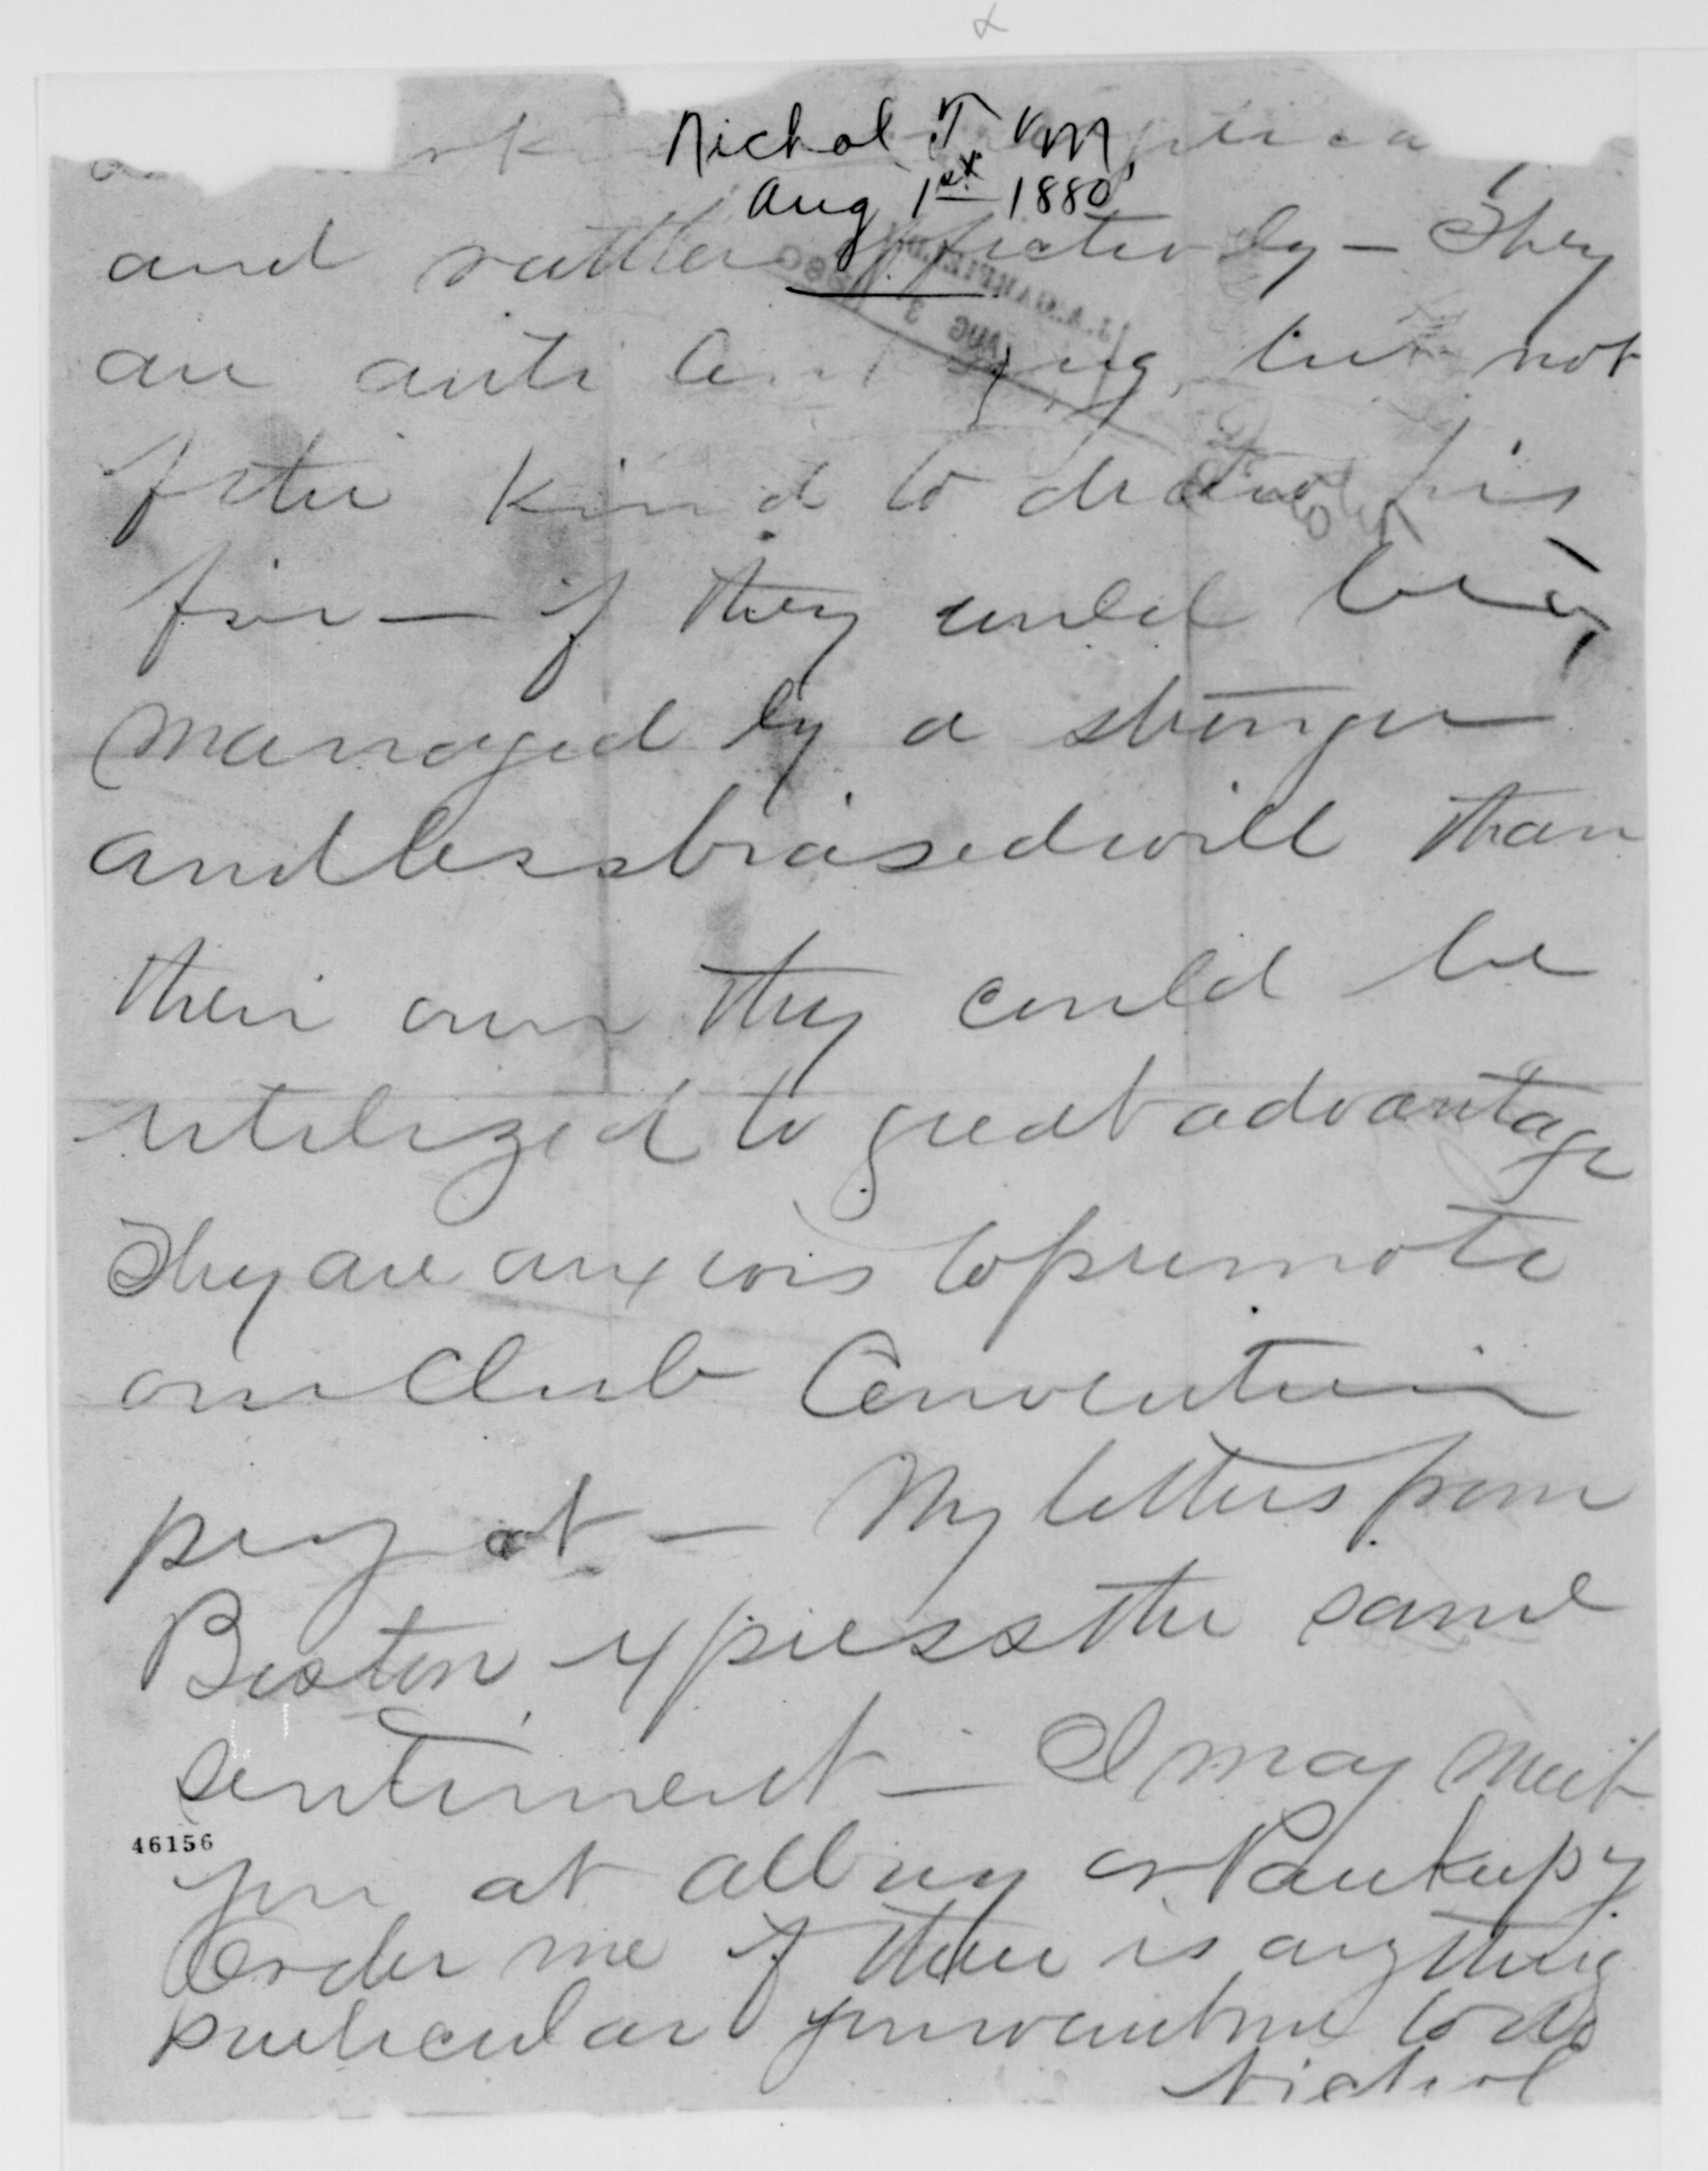 Nichol T. M.
Aug 1st 1880
and rather effectively — They
are anti but not
of the kind to draw his
fire — if they could be
managed by a stronger
and less biased will than
their own they could be
utilized to great advantage
They are anxious to promote
our Club Convention
project — My letters from
Boston express the same
sentiment — I may meet
46156
you at Albany or Paukupsy
Order me if there is anything
particular you want me to do
Nichol